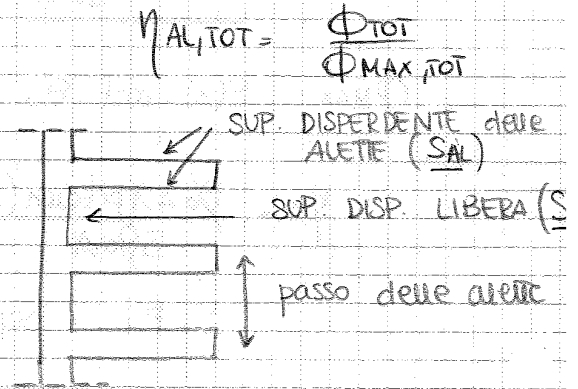 ηAL,TOT = ΦTOT / ΦMAX,TOT
SUP. DISPERDENTE delle
ALETTE (SAL)
SUP. DISP. LIBERA (S
passo delle alette